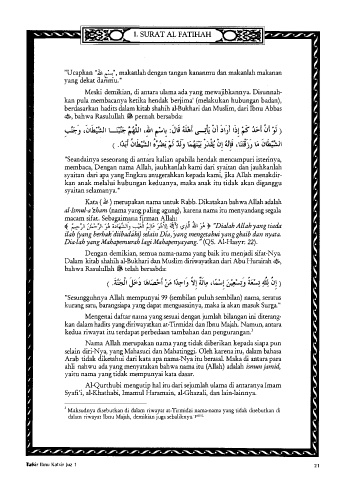 1. SURAT AL FATIHAH
"Ucapkan "بِسْمِ اللهِ", makanlah dengan tangan kananmu dan makanlah makanan
yang dekat darimu."
Meski demikian, di antara ulama ada yang mewajibkannya. Disunnah-
kan pula membacanya ketika hendak berjima' (melakukan hubungan badan),
berdasarkan hadits dalam kitab shahih al-Bukhari dan Muslim, dari Ibnu Abbas
, bahwa Rasulullah ﷺ pernah bersabda:
( لَوْ أَنَّ أَحَدَكُمْ إِذَا أَرَادَ أَنْ يَأْتِيَ أَهْلَهُ قَالَ: بِاسْمِ اللهِ، اللَّهُمَّ جَنِّبْنَا الشَّيْطَانَ، وَجَنِّبِ
الشَّيْطَانَ مَا رَزَقْتَنَا، فَإِنَّهُ إِنْ يُقَدَّرْ بَيْنَهُمَا وَلَدٌ لَمْ يَضُرَّهُ الشَّيْطَانُ أَبَدًا. )
"Seandainya seseorang di antara kalian apabila hendak mencampuri isterinya,
membaca, Dengan nama Allah, jauhkanlah kami dari syaitan dan jauhkanlah
syaitan dari apa yang Engkau anugerahkan kepada kami, jika Allah menakdir-
kan anak melalui hubungan keduanya, maka anak itu tidak akan diganggu
syaitan selamanya."
Kata (الله) merupakan nama untuk Rabb. Dikatakan bahwa Allah adalah
al-Ismul-a'zham (nama yang paling agung), karena nama itu menyandang segala
macam sifat. Sebagaimana firman Allah:
﴿ هُوَ اللهُ الَّذِي لَا إِلَهَ إِلَّا هُوَ عَالِمُ الْغَيْبِ وَالشَّهَادَةِ هُوَ الرَّحْمَنُ الرَّحِيمُ ﴾ "Dialah Allah yang tiada
ilah (yang berhak diibadahi) selain Dia, yang mengetahui yang ghaib dan nyata.
Dia-lah yang Mahapemurah lagi Mahapenyayang." (QS. Al-Hasyr: 22).
Dengan demikian, semua nama-nama yang baik itu menjadi sifat-Nya.
Dalam kitab shahih al-Bukhari dan Muslim diriwayatkan dari Abu Hurairah
bahwa Rasulullah ﷺ telah bersabda:
( إِنَّ لِلَّهِ تِسْعَةً وَتِسْعِينَ اِسْمًا، مِائَةً إِلاَّ وَاحِدًا مَنْ أَحْصَاهَا دَخَلَ الْجَنَّةَ. )
"Sesungguhnya Allah mempunyai 99 (sembilan puluh sembilan) nama, seratus
kurang satu, barangsiapa yang dapat menguasainya, maka ia akan masuk Surga."
Mengenai daftar nama yang sesuai dengan jumlah bilangan ini diterang-
kan dalam hadits yang diriwayatkan at-Tirmidzi dan Ibnu Majah. Namun, antara
kedua riwayat itu terdapat perbedaan tambahan dan pengurangan.¹
Nama Allah merupakan nama yang tidak diberikan kepada siapa pun
selain diri-Nya, yang Mahasuci dan Mahatinggi. Oleh karena itu, dalam bahasa
Arab tidak diketahui dari kata apa nama-Nya itu berasal. Maka di antara para
ahli nahwu ada yang menyatakan bahwa nama itu (Allah) adalah ismun jamid,
yaitu nama yang tidak mempunyai kata dasar.
Al-Qurthubi mengutip hal itu dari sejumlah ulama di antaranya Imam
Syafi'i, al-Khathabi, Imamul Haramain, al-Ghazali, dan lain-lainnya.
¹ Maksudnya disebutkan di dalam riwayat at-Tirmidzi nama-nama yang tidak disebutkan di
dalam riwayat Ibnu Majah, demikian juga sebaliknya.
Tafsir Ibnu Katsir Juz 1
21